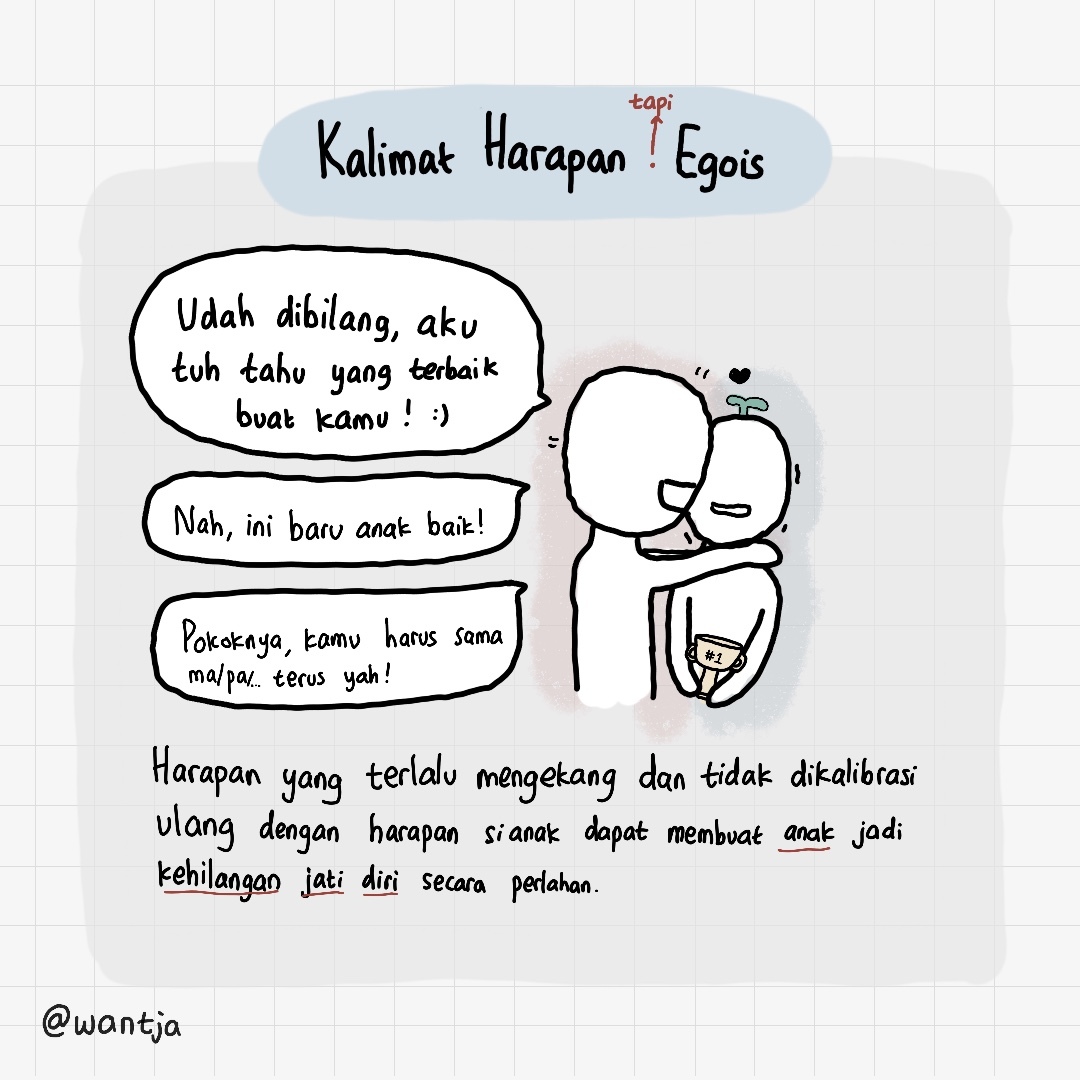 tapi
Kalimat Harapan Egois
Udah dibilang, aku
tuh tahu yang terbaik
buat kamu! :)
Nah, ini baru anak baik!
Pokoknya, kamu harus sama
ma/pa/.. terus yah!
#1
Harapan yang terlalu mengekang dan tidak dikalibrasi
ulang dengan harapan sianak dapat membuat anak jadi
kehilangan jati diri secara perlahan.
@wantja